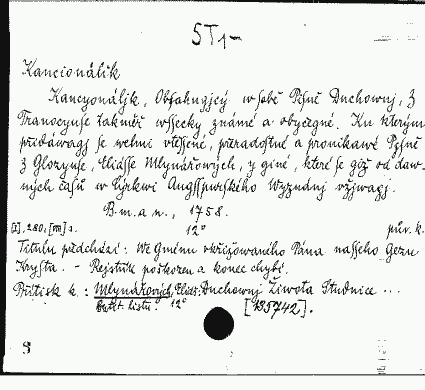 ST1-
Kancionálik
Kancyonáljk, Obsahugjcý w sobě Pjsně Duchownj, Z
Tranocyuse takměř wssecky, známé a obyčegné. Ku kterým
přidáwagj se welmi utěssené, přeradostné a pronikawé Pjsně
Z Glozyuse, Eliásse Mlynářowých, y giné, které se giž od daw-
ných časů w Cýrkwi Augsspurského Wyznánj vžjwagj.
B.m.a n., 1758.
[I], 280, [VIII] s. 12° pův. k.
Titulu předchází: We Gménu vkřižowaného Pána nasseho Gezu
Krysta. - Rejstřík poškozen a konec chybí.
Přítisk k: Mlynářowých, Eliáš: Duchownj Žiwota Studnice ...
12° [135742].
S